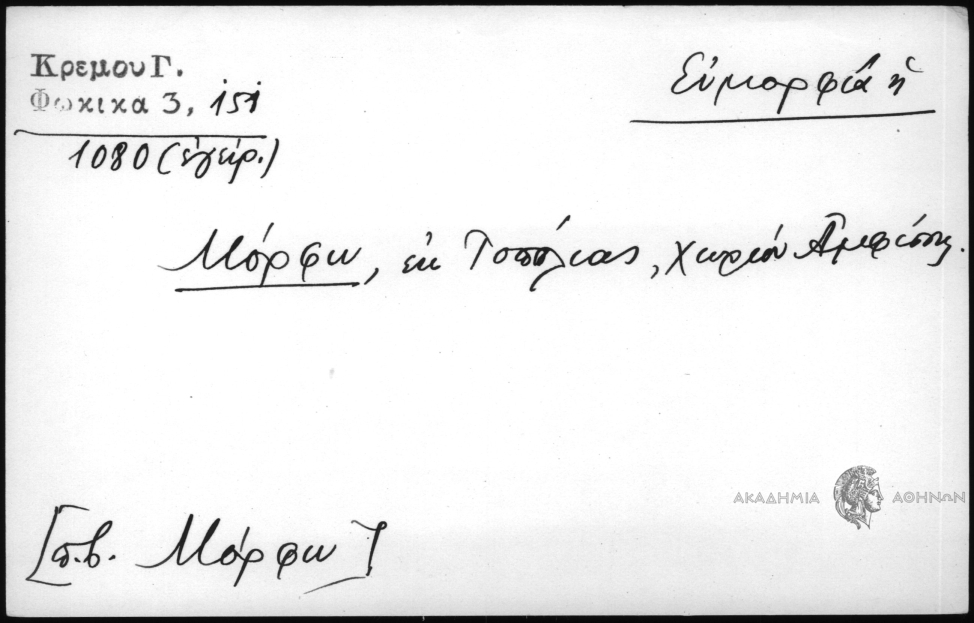 Κρεμου Γ.
Φωκικα 3, 151
1080 (ἐγείρ.)
Εὐμορφία ἡ
Μόρφω, ἐκ Τοπόλιας, χωρίον Ἀμφίσσης.
ΑΚΑΔΗΜΙΑ ΑΘΗΝΩΝ
[π.β. Μόρφω]